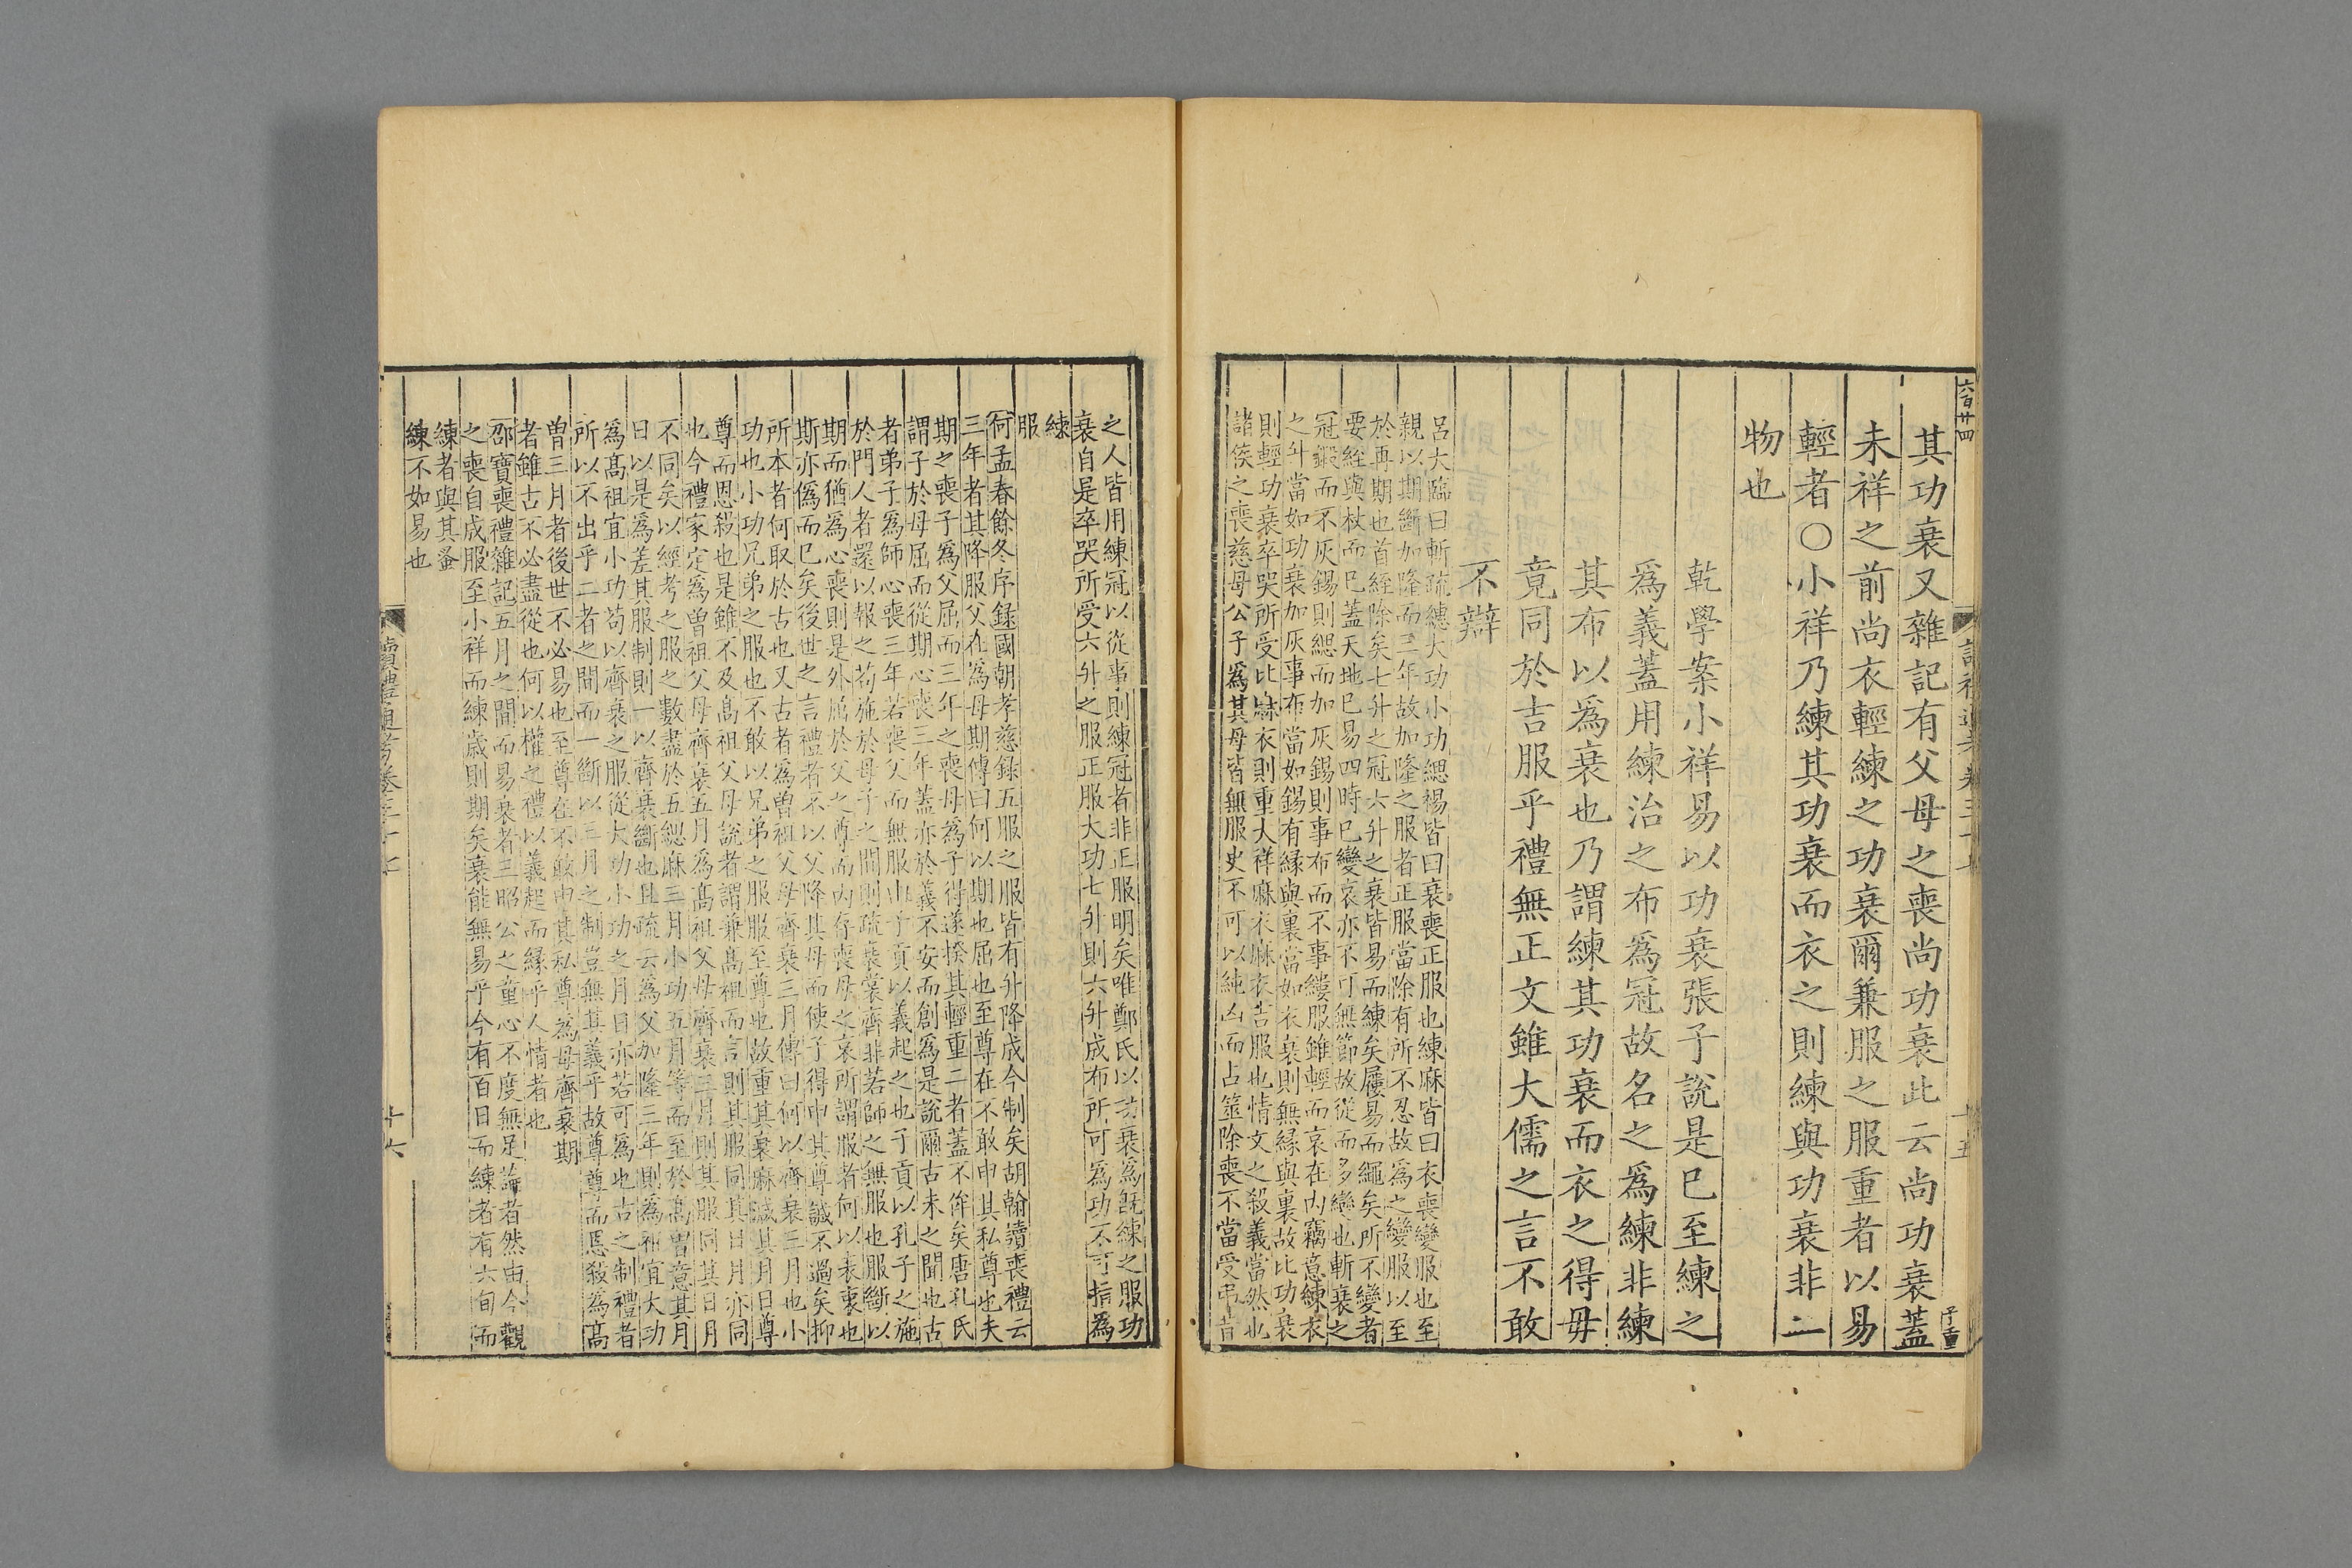 六百廿四
其功衰又雜記有父母之喪尚功衰此云尚功衰蓋
未祥之前尚衣輕練之功衰爾兼服之服重者以易
輕者〇小祥乃練其功衰而衣之則練與功衰非二
物也
乾學案小祥易以功衰張子說是已至練之
爲義蓋用練治之布爲冠故名之爲練非練
其布以爲衰也乃謂練其功衰而衣之得毋
竟同於吉服乎禮無正文雖大儒之言不敢
不辯
呂大臨曰斬疏繐大功小功緦裼皆曰衰喪正服也練麻皆曰衣喪變服也至
親以期斷加隆而三年故加隆之服者正服當除有所不忍故爲之變服以至
於再期也首絰除矣七升之冠六升之衰皆易而練矣屨易而繩矣所不變者
要絰與杖而已蓋天地已易四時已變哀亦不可無節故從而多變也斬衰之
冠鍛而不灰錫則緦而加灰錫則事布而不事縷服雖輕而哀在內竊意練衣
之升當如功衰加灰事布當如錫有緣與裏當如衣衰則無緣與裏故比功衰
則輕功衰卒哭所受比練衣則重大祥麻衣麻衣吉服也情文之殺義當然也
諸侯之喪慈母公子爲其母皆無服史不可以純凶而占筮除喪不當受弔昔
之人皆用練冠以從事則練冠者非正服明矣唯鄭氏以功衰爲旣練之服功
衰自是卒哭所受六升之服正服大功七升則六升成布所可爲功不可指爲
練
服
何孟春餘冬序錄國朝孝慈錄五服之服皆有升降成今制矣胡翰讀喪禮云
三年者其降服父在爲母期傳曰何以期也屈也至尊在不敢申其私尊也夫
期之喪子爲父屈而三年之喪母爲子得遂揆其輕重二者蓋不侔矣唐孔氏
謂子於母屈而從期心喪三年蓋亦於義不安而創爲是說爾古未之聞也古
者弟子爲師心喪三年若喪父而無服出子貢以義起之也子貢以孔子之施
於門人者還以報之苟施於母子之間則疏衰裳齊非若師之無服也服斷以
期而猶爲心喪則是外屈於父之尊而內存喪母之哀所謂服者何以表衷也
斯亦僞而已矣後世之言禮者不以父降其母而使子得申其尊誠不過矣抑
所本者何取於古也又古者爲曾祖父母齊衰三月傳曰何以齊衰三月也小
功也小功兄弟之服也不敢以兄弟之服服至尊也故重其衰麻減其月日尊
尊而恩殺也是雖不及髙祖父母說者謂兼髙祖而言則其服同其日月亦同
也今禮家定爲曾祖父母齊衰五月爲髙祖父母齊衰三月則其服同其日月
不同矣以經考之服之數盡於五緦麻三月小功五月等而至於髙曾意其月
日以是爲差其服制則一以齊衰斷也且疏云爲父加隆三年則爲祖宜大功
爲髙祖宜小功苟以齊衰之服從大功小功之月日亦若可爲也古之制禮者
所以不出乎二者之間而一斷以三月之制豈無其義乎故尊尊而恩殺爲髙
曾三月者後世不必易也至尊在不敢申其私尊爲母齊衰期
者雖古不必盡從也何以權之禮以義起而緣乎人情者也
邵寶喪禮雜記五月之間而易衰者三昭公之童心不度無足論者然由今觀
之喪自成服至小祥而練歲則期矣衰能無易乎今有百日而練者有六旬而
練者與其蚤
練不如易也
讀禮通考卷三十七
十六